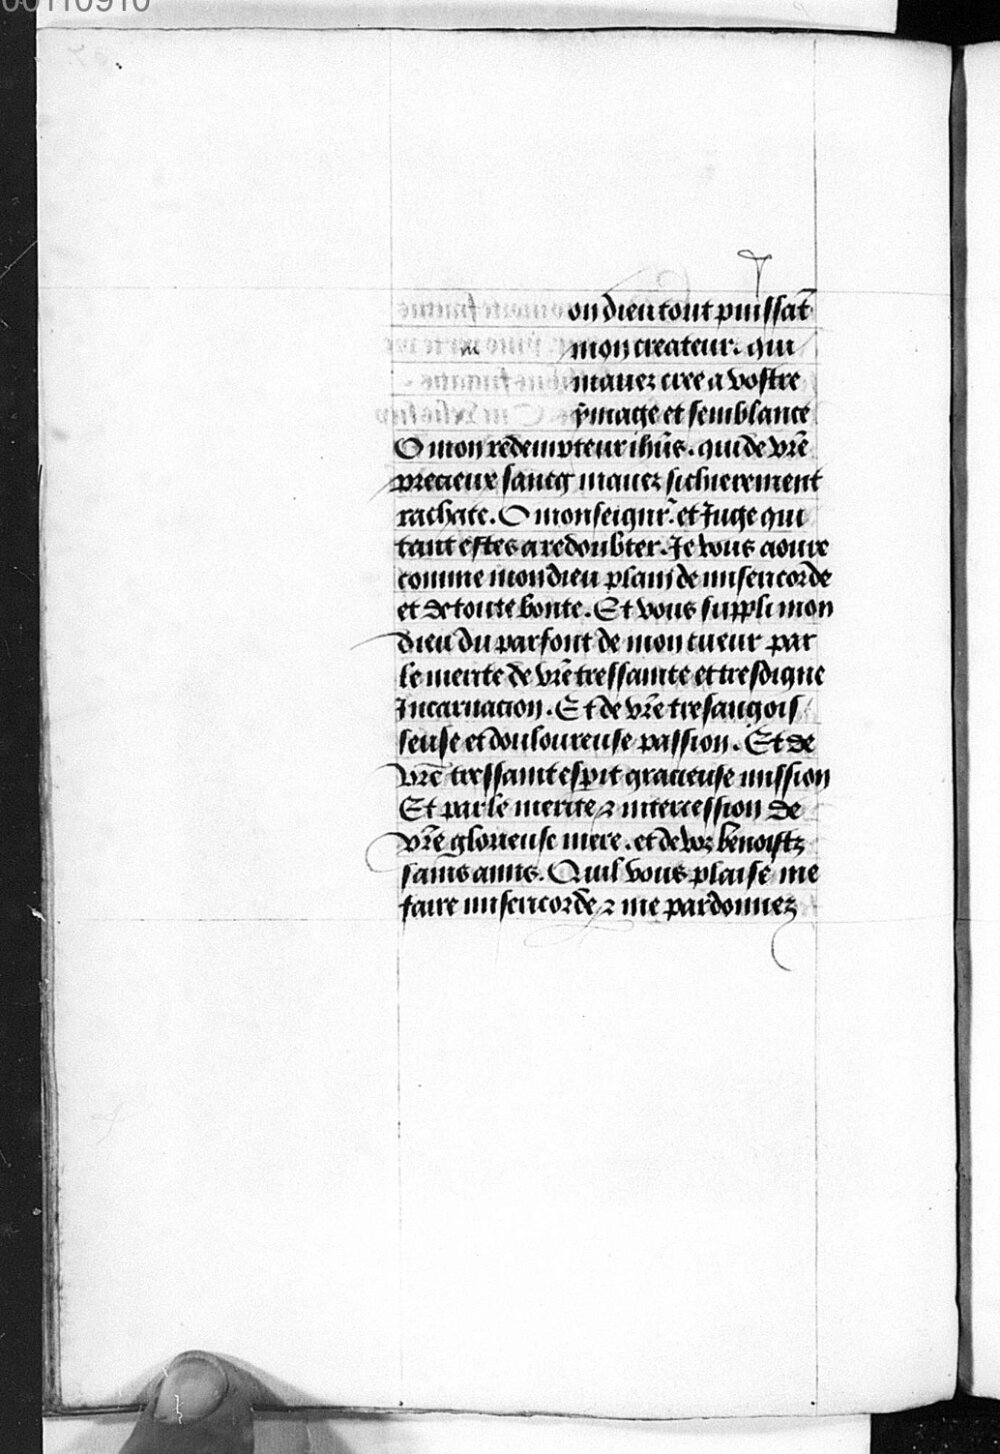 00110910
on dieu tout puissãt
m mon createur. qui
mauez cree a vostre
ẏmage et semblance
O mon redempteur ihũs. qui de vrẽ
precieux sancg mauez si chierement
rachate. O mon seignr̃. et Juge qui
tant estes a redoubter. Je vous aoure
comme mon dieu plain de misericorde
et de toute bonte. Et vous suppli mon
dieu du parfont de mon cueur par
le merite de vrẽ tressainte et tresdigne
Incarnacion. Et de vrẽ tresangois
seuse et douloureuse passion. Et de
vrẽ tressaint esp̃it gracieuse mission
Et par le merite ⁊ intercession de
vrẽ glorieuse mere. et de voz benoistz
sains amis. Quil vous plaise me
faire misericorde ⁊ me pardonnez